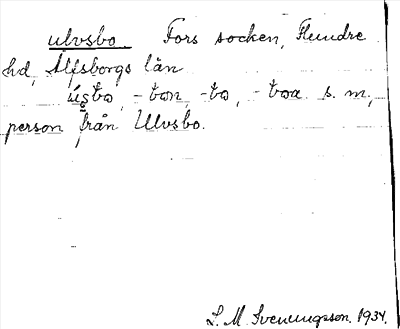 ulvsbo. Fors socken, Flundre
hd, Älfsborgs län
person från Ulvsbo.
L. M. Svenungsson. 1934.